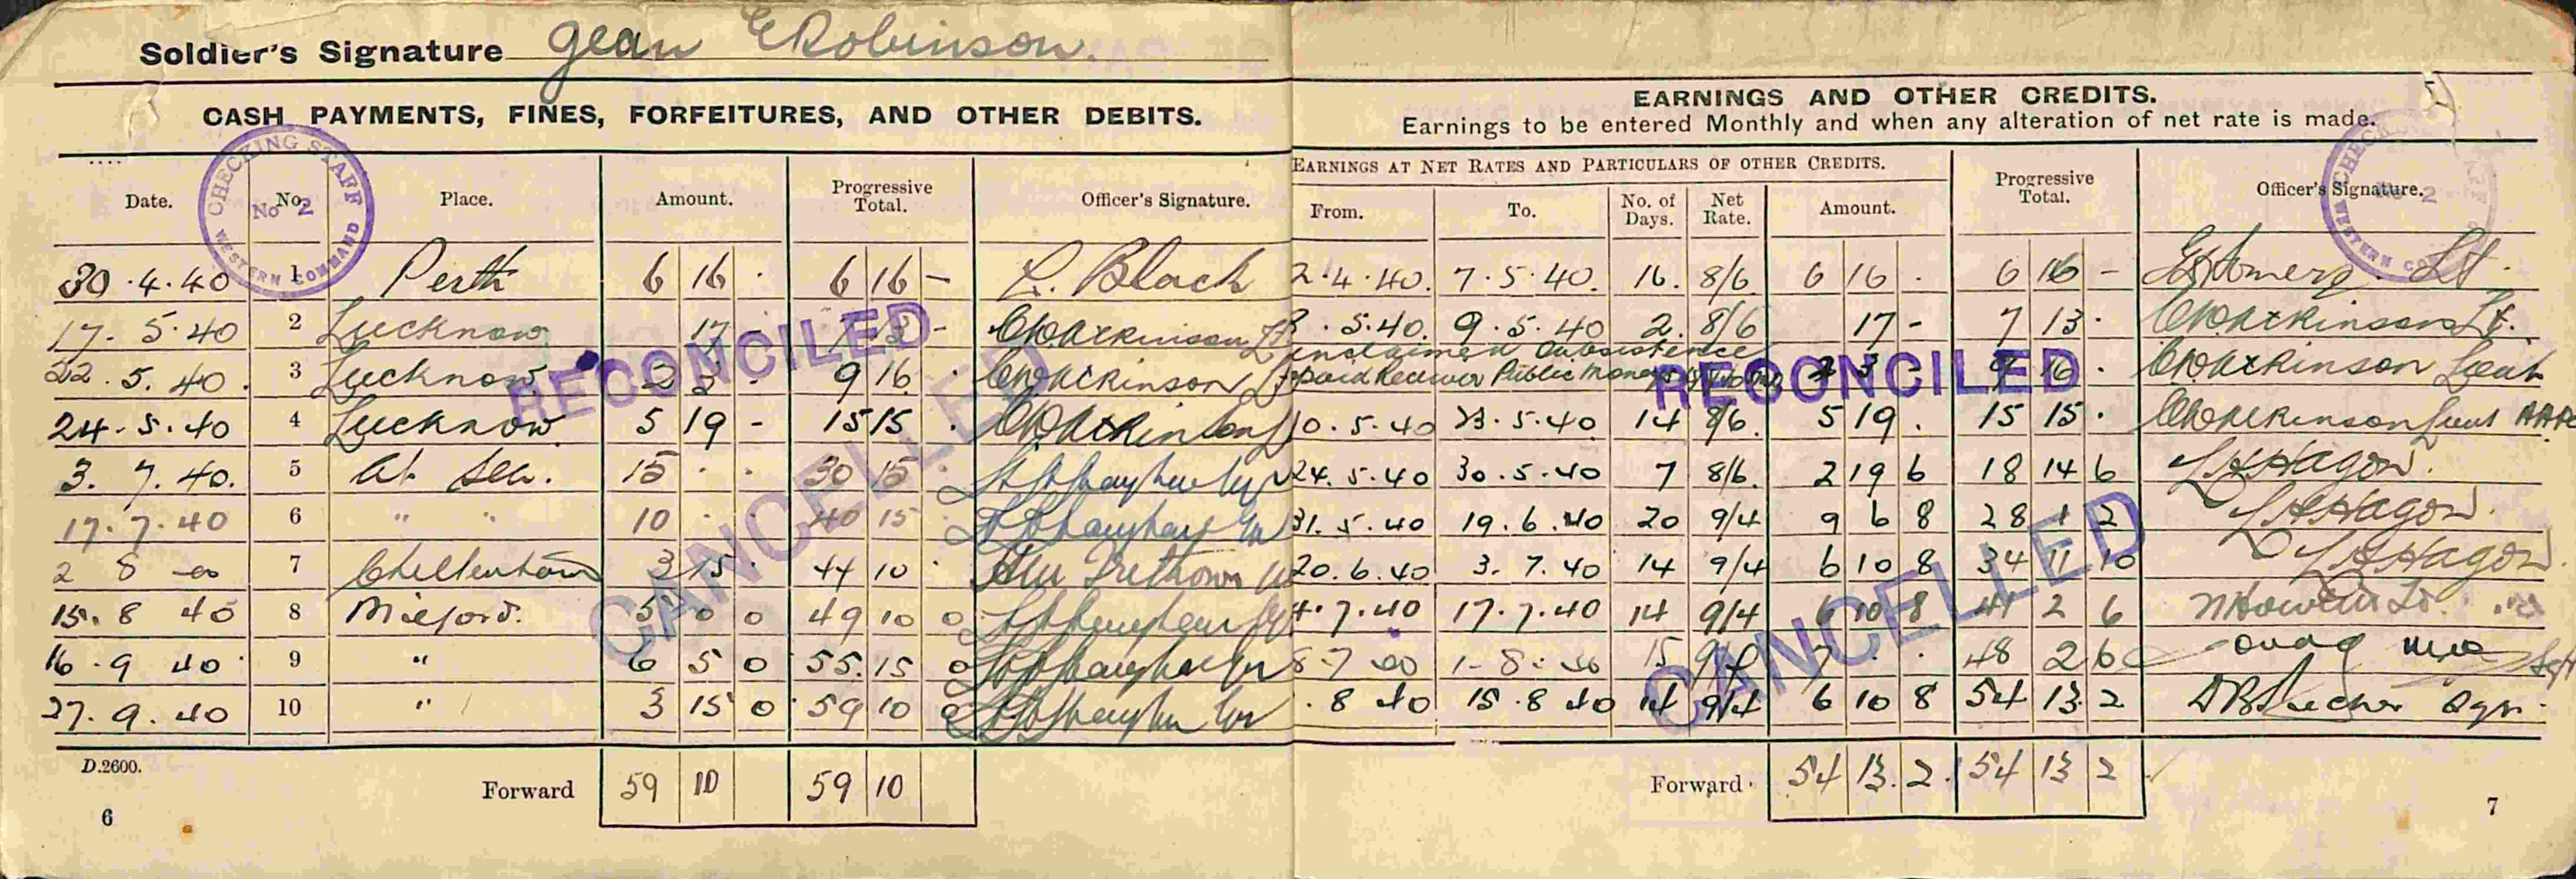 Soldier's Signature Jean E Robinson.
CASH PAYMENTS, FINES, FORFEITURES, AND OTHER DEBITS.
CHECKING STAFF No 2 WESTERN COMMAND
Date. No. Place. Amount. Progressive Total. Officer's Signature.
30.4.40 1 Perth 6 16 . 6 16 - L. Black
17.5.40 2 Lucknow 17 7 13 - Atkinson Lt
22.5.40. 3 Lucknow 2 3 . 9 16 . Atkinson Lt
24.5.40 4 Lucknow. 5 19 - 15 15 . Atkinson
3.7.40. 5 At Sea. 15 . . 30 15 .
17.7.40 6 " " 10 . . 40 15
2 8 40 7 Cheltenham 3 15 . 44 10 .
15.8 40 8 Milford. 5 0 0 49 10 0
16.9 40 9 " 6 5 0 55.15 0
27.9.40 10 " 3 15 0 59 10 0
RECONCILED
CANCELLED
D.2600.
Forward 59 10 59 10
6
EARNINGS AND OTHER CREDITS.
Earnings to be entered Monthly and when any alteration of net rate is made.
CHECKING STAFF No 2 WESTERN COMMAND
EARNINGS AT NET RATES AND PARTICULARS OF OTHER CREDITS. Progressive Total. Officer's Signature.
From. To. No. of Days. Net Rate. Amount.
2.4.40. 7.5.40. 16. 8/6 6 16 . 6 16 - Lt.
. 5.40. 9.5.40 2. 8/6 17 - 7 13. Atkinson Lt.
unclaimed Subsistence
paid Receiver Public Moneys 2 3 - 9 16 . Atkinson Lieut
10.5.40 23.5.40 14 8/6 5 19 . 15 15 . Atkinson Lieut
24.5.40 30.5.40 7 8/6. 2 19 6 18 14 6 Hagon.
31.5.40 19.6.40 20 9/4 9 6 8 28 1 2 Hagon.
20.6.40 3.7.40 14 9/4 6 10 8 34 11 10 Hagon.
4.7.40 17.7.40 14 9/4 6 10 8 41 2 6
8-7 40 1-8-40 15 9/4 7 . . 48 2 6
. 8 40 15.8 40 14 9/4 6 10 8 54 13 2
RECONCILED
CANCELLED
Forward 54 13.2. 54 13 2
7